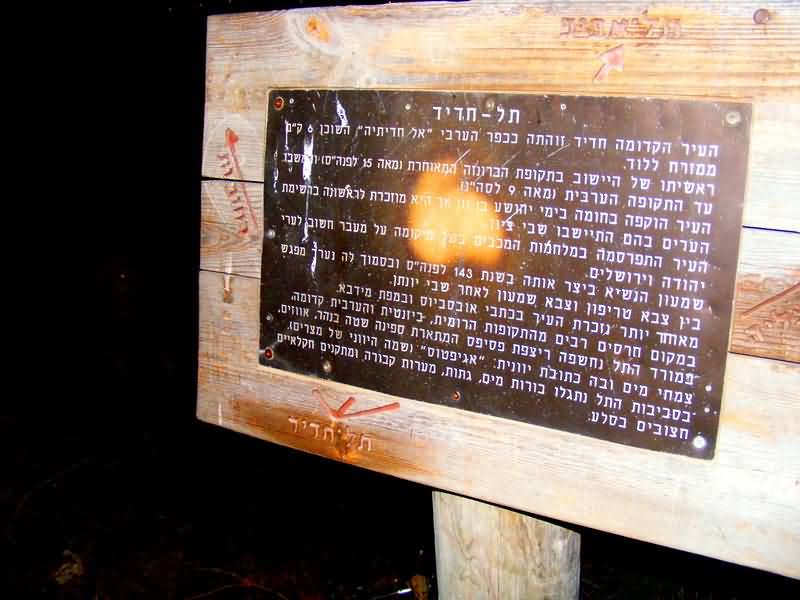 תל-חדיד
העיר הקדומה חדיד זוהתה ככפר הערבי "אל חדיתיה" השוכן 6 ק"מ
ממזרח ללוד.
ראשיתו של היישוב בתקופת הברונזה המאוחרת (מאה 15 לפנה"ס)
עד התקופה הערבית (מאה 9 לסה"נ)
העיר הוקפה בחומה בימי יהושע בן נון אך היא מוזכרת לראשונה ברשימת
הערים בהם התיישבו שבי ציון.
העיר התפרסמה במלחמות המכבים בשל מיקומה על מעבר חשוב לערי
יהודה וירושלים.
שמעון הנשיא ביצר אותה בשנת 143 לפנה"ס ובסמוך לה נערך מפגש
בין צבא טריפון וצבא שמעון לאחר שבי יונתן.
מאוחר יותר נזכרת העיר בכתבי אובסביוס ובמפת מידבא.
במקום חרסים רבים מהתקופות הרומית, ביזנטית והערבית קדומה.
במורד התל נחשפה ריצפת פסיפס המתארת ספינה שטה בנהר, אווזים,
צמחי מים ובה כתובת יוונית: "אגיפטוס" (שמה היווני של מצרים).
בסביבות התל נתגלו בורות מים, גתות, מערות קבורה ומתקנים חקלאיים
חצובים בסלע.
תל חדיד